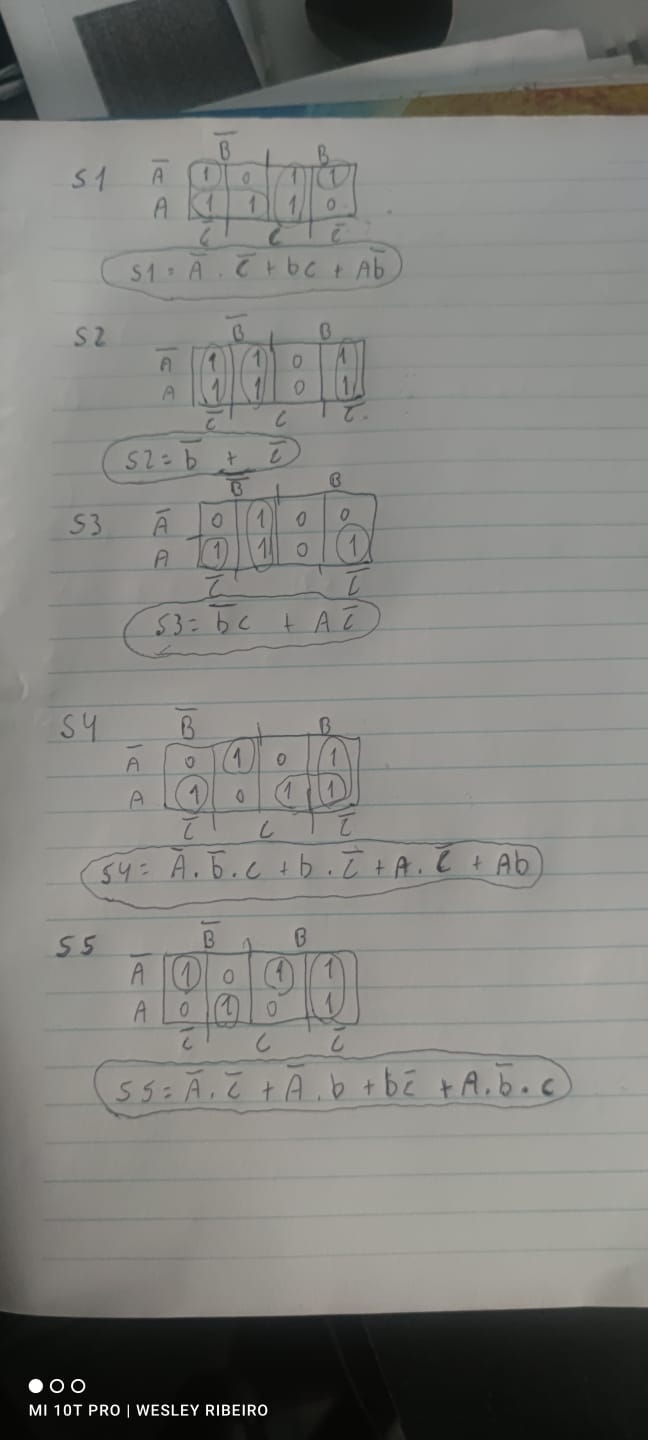 B̅ B
S1 A̅ 1 0 1 1
A 1 1 1 0
C̅ C C̅
S1 = A̅ . C̅ + bc + Ab̅
S2 B̅ B
A̅ 1 1 0 1
A 1 1 0 1
C̅ C C̅
S2 = b̅ + C̅
B̅ B
S3 A̅ 0 1 0 0
A 1 1 0 1
C̅ C̅
S3 = b̅c + A C̅
S4 B̅ B
A̅ 0 1 0 1
A 1 0 1 1
C̅ C C̅
S4 = A̅ . b̅ . c + b . C̅ + A . C̅ + Ab
S5 B̅ B
A̅ 1 0 1 1
A 0 1 0 1
C̅ C C̅
S5 = A̅ . C̅ + A̅ . b + bC̅ + A . b̅ . c
MI 10T PRO | WESLEY RIBEIRO